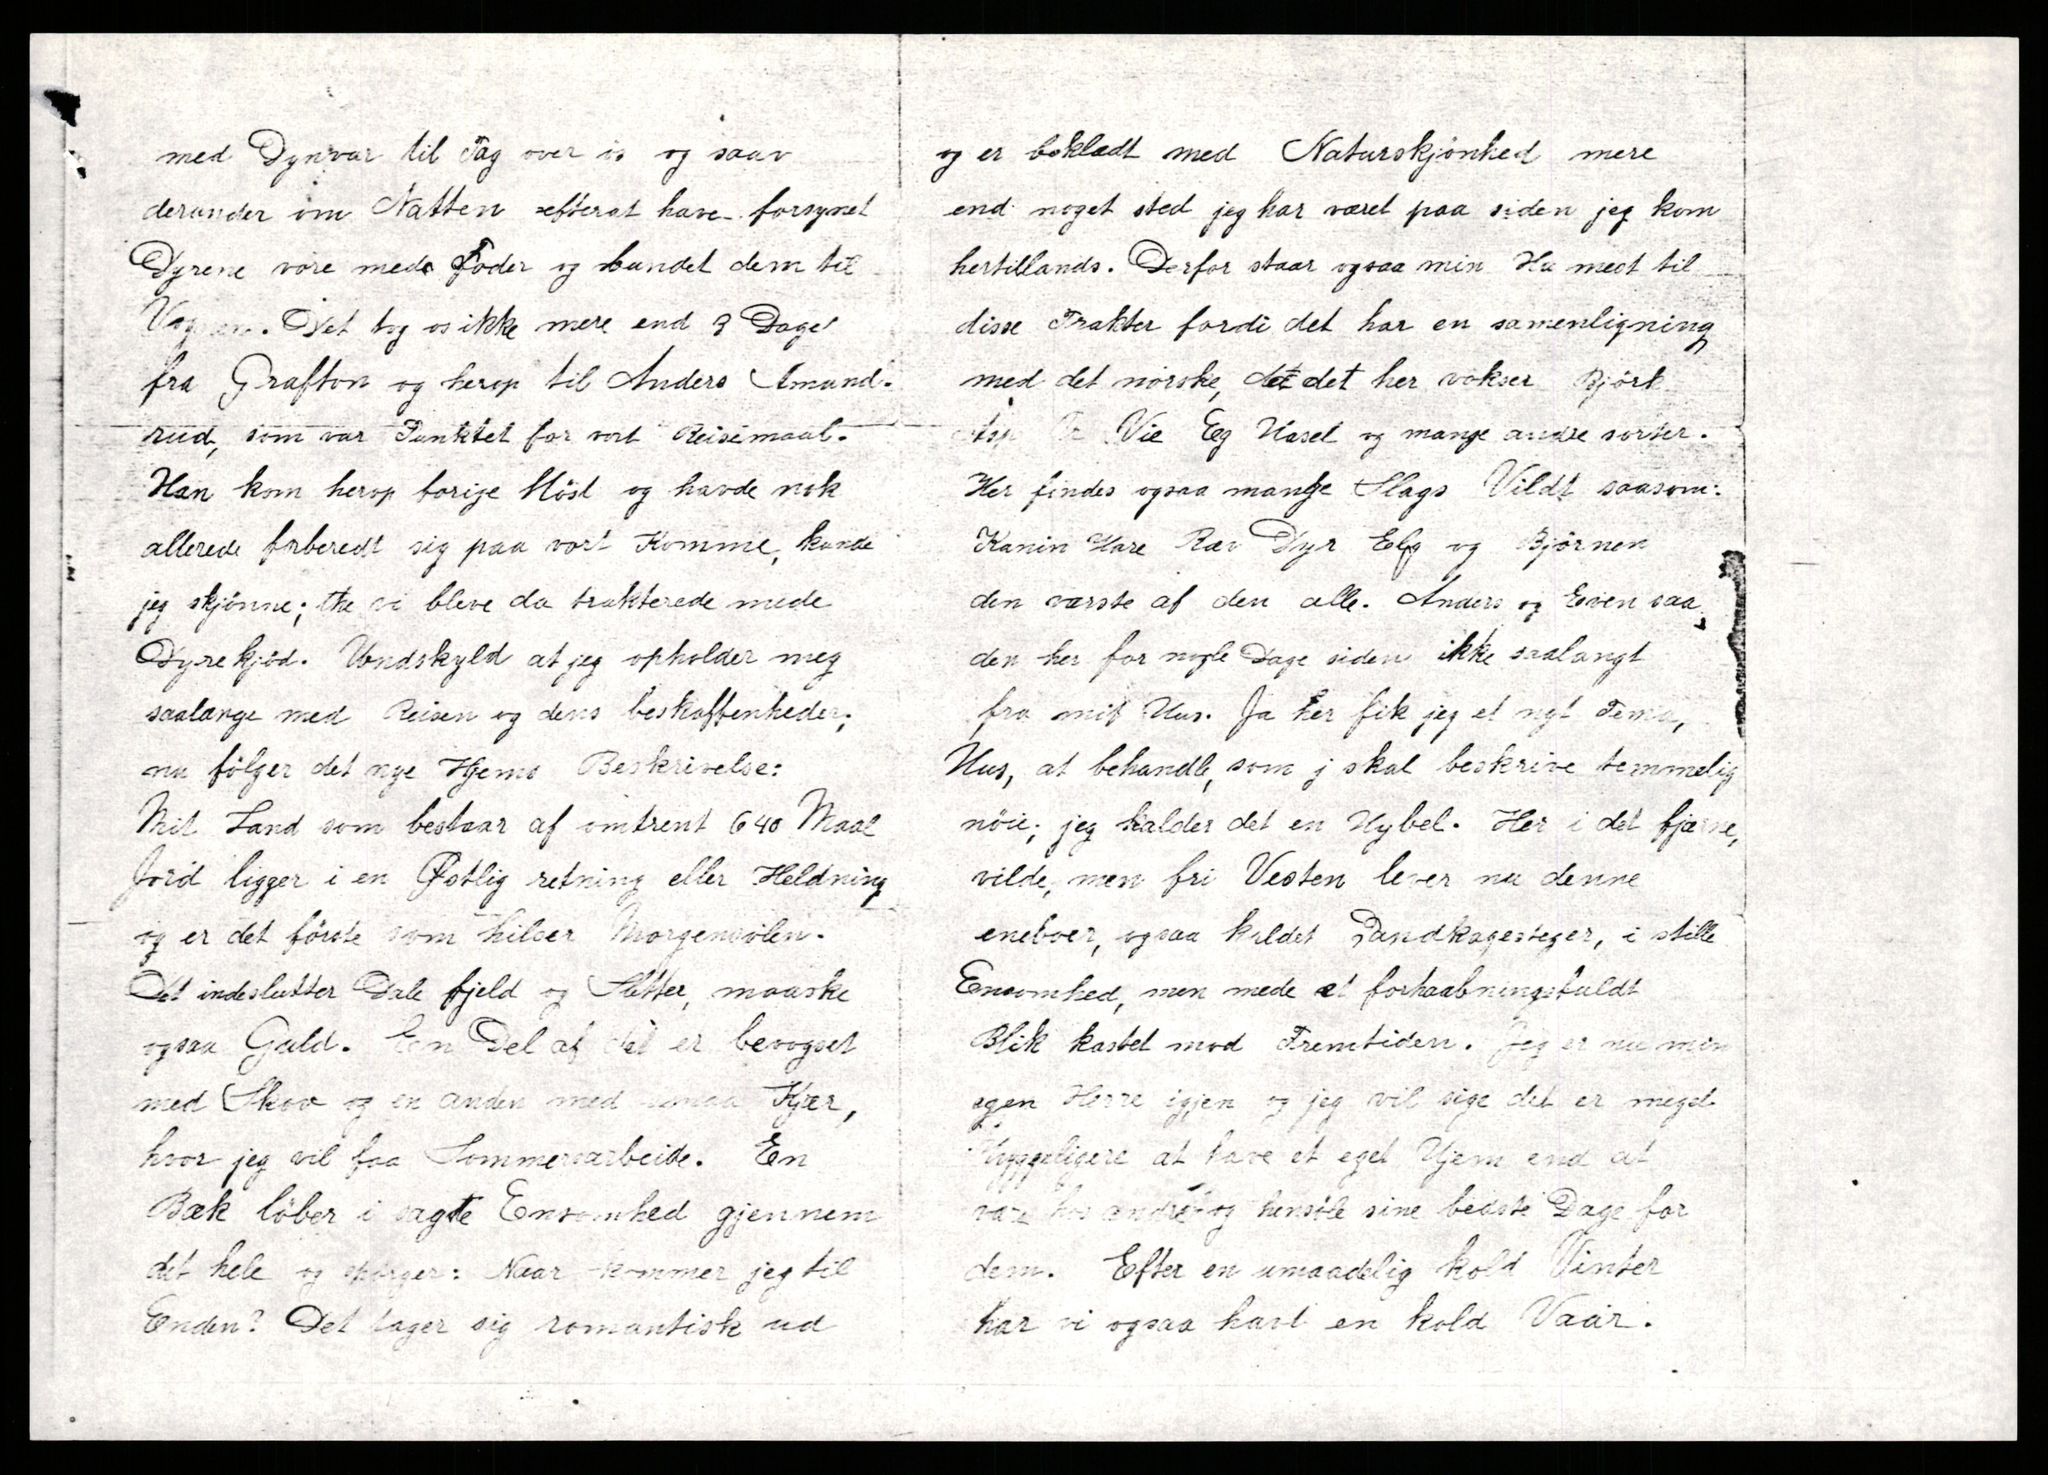 med Dynvar til Tag over os og saav
derunder om Natten efterat have forsynet
Dyrene vore mede Foder og bundet dem til
Vognen. Det tog os ikke mere end 3 Dage
fra Grafton og herop til Anders Amund-
rud, som var Punktet for vort Reisemaal.
Han kom herop forige Høst og havde nok
allerede forberedt sig paa vort Komme, kunde
jeg skjønne; the vi bleve da trakterede mede
Dyrekjød. Undskyld at jeg opholder meg
saalænge med Reisen og dens beskaffenheder;
nu følger det nye Hjems Beskrivelse:
Mit Land som bestaar af omtrent 640 Maal
Jord ligger i en Østlig retning eller Heldning
og er det første som hilser Morgensolen.
Det indeslutter Dale fjeld og Sletter, maaske
ogsaa Guld. Een Del af det er bevogset
med Skov og en anden med smaa Kjær,
hvor jeg vil faa Sommerarbeide. En
Bæk løber i sagte Ensomhed gjennem
det hele og spørger: Naar kommer jeg til
Enden? Det tager sig romantisk ud
og er beklædt med Naturskjønhed mere
end noget sted jeg har været paa siden jeg kom
hertillands. Derfor staar ogsaa min Hu mest til
disse Trakter fordi det har en samenligning
med det norske, det det her vokser Bjørk
Asp Vie Eeg Hasel og mange andre sorter.
Her findes ogsaa mange Slags Vildt saasom:
Kanin Hare Ræv Dyr Elg og Bjørnen
den værste af den alle. Anders og Even saa
den her for nogle Dage siden ikke saalangt
fra mit Hus. Ja her fik jeg et nyt Tema,
Hus, at behandle, som j skal beskrive temmelig
nøie; jeg kalder det en Hybel. Her i det fjærne,
vilde, men fri Vesten lever nu denne
eneboer, ogsaa kaldet Pandkagesteger, i stille
Ensomhed, men mede et forhaabningsfuldt
Blik kastet mod Fremtiden. Jeg er nu min
egen Herre igjen og jeg vil sige det er meget
Hyggeligere at have et eget Hjem end at
være hos andre og henslite sine bedste Dage for
dem. Efter en umaadelig kold Vinter
har vi ogsaa havt en kold Vaar.